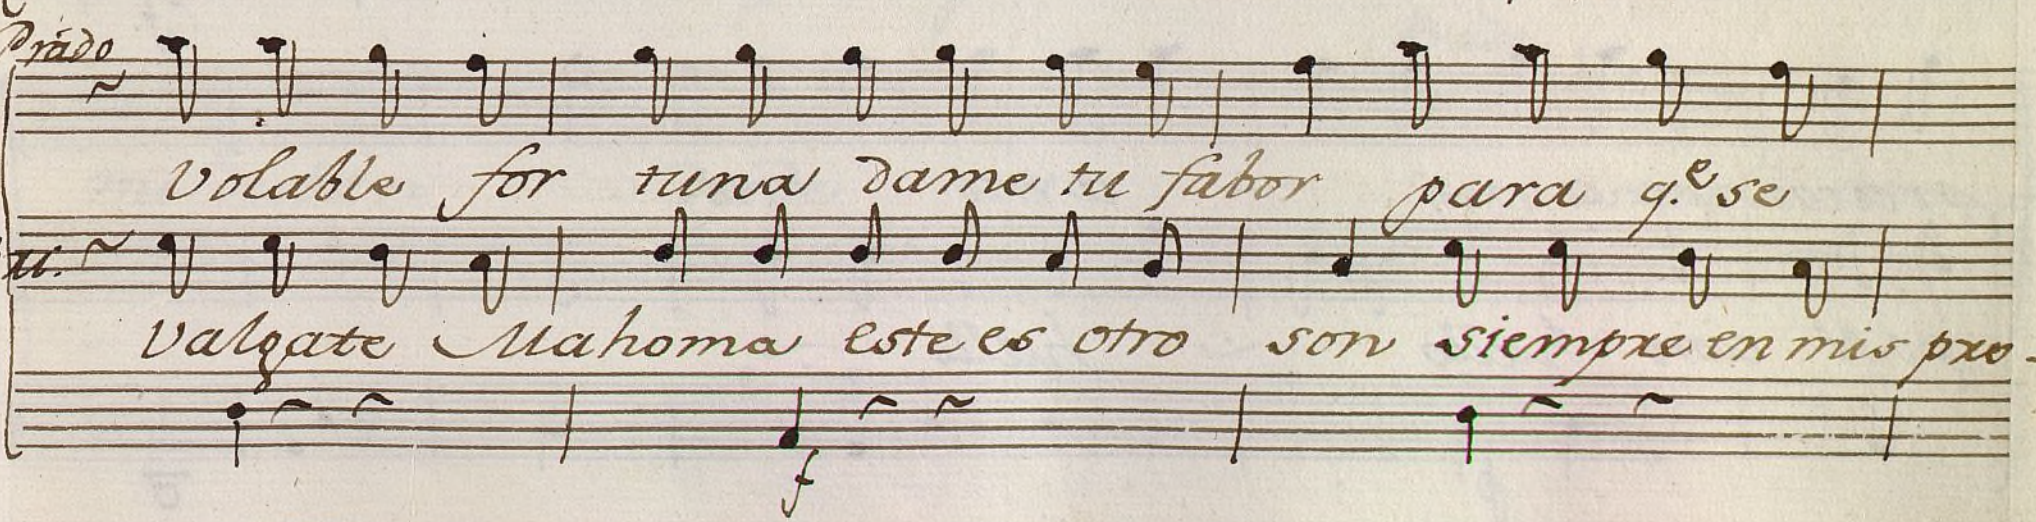 Prado
Volable for tuna dame tu fabor para q.e se
Valgate Mahoma este es otro son siempre en mis pro-
f